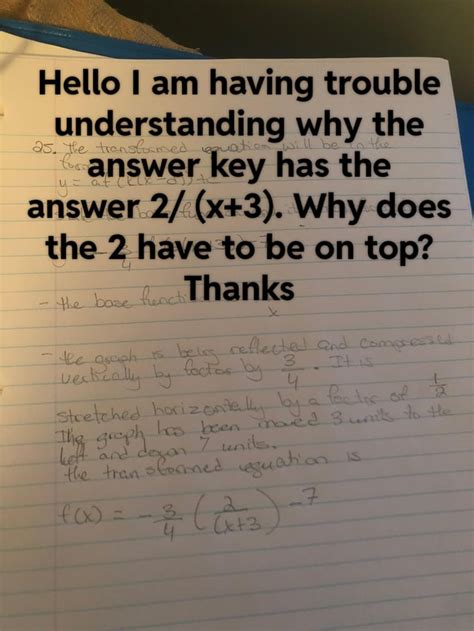 Hello I am having trouble
understanding why the
answer key has the
answer 2/(x+3). Why does
the 2 have to be on top?
Thanks
25. The transformed equation will be in the
- the base function
x
- the graph is being reflected and compressed
vertically by factor by 3/4. It is
stretched horizontally by a factor of
The graph has been moved 3 units to the
left and down 7 units.
the transformed equation is
f(x) = - 3/4 ( 2/(x+3 ) - 7